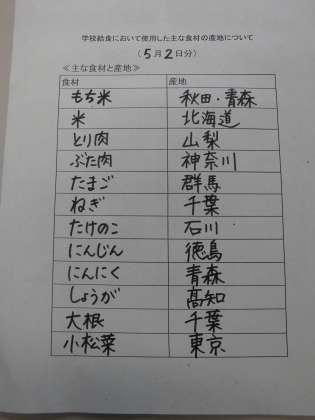 学校給食において使用した主な食材の産地について
（5月2日分）
≪主な食材と産地≫
食材 産地
もち米 秋田・青森
米 北海道
とり肉 山梨
ぶた肉 神奈川
たまご 群馬
ねぎ 千葉
たけのこ 石川
にんじん 徳島
にんにく 青森
しょうが 高知
大根 千葉
小松菜 東京